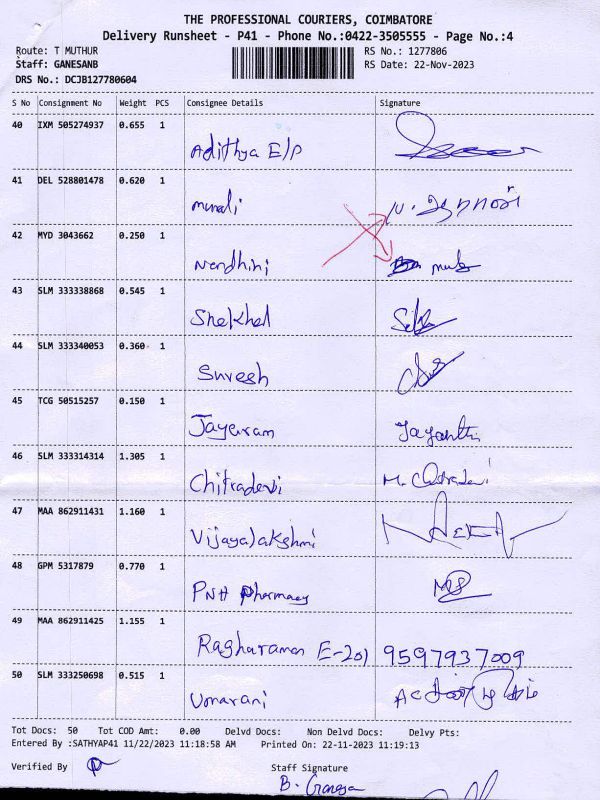 THE PROFESSIONAL COURIERS, COIMBATORE
Delivery Runsheet - P41 - Phone No.:0422-3505555 - Page No.:4
Route: T MUTHUR RS No.: 1277806
Staff: GANESANB RS Date: 22-Nov-2023
DRS No.: DCJB127780604
S No Consignment No Weight PCS Consignee Details Signature
40 IXM 505274937 0.655 1 Adithya E/P
41 DEL 528801478 0.620 1 murali
42 MYD 3043662 0.250 1 Nandhini
43 SLM 333338868 0.545 1 Shekhal
44 SLM 333340053 0.360 1 Suresh
45 TCG 50515257 0.150 1 Jayaram Jayanthi
46 SLM 333314314 1.305 1 Chitradevi M. Chitradevi
47 MAA 862911431 1.160 1 Vijayalakshmi
48 GPM 5317879 0.770 1 PNH Pharmacy
49 MAA 862911425 1.155 1 Ragharaman E-201 9597937009
50 SLM 333250698 0.515 1 Umarani
Tot Docs: 50 Tot COD Amt: 0.00 Delvd Docs: Non Delvd Docs: Delvy Pts:
Entered By :SATHYAP41 11/22/2023 11:18:58 AM Printed On: 22-11-2023 11:19:13
Verified By Staff Signature
B. Ganesa